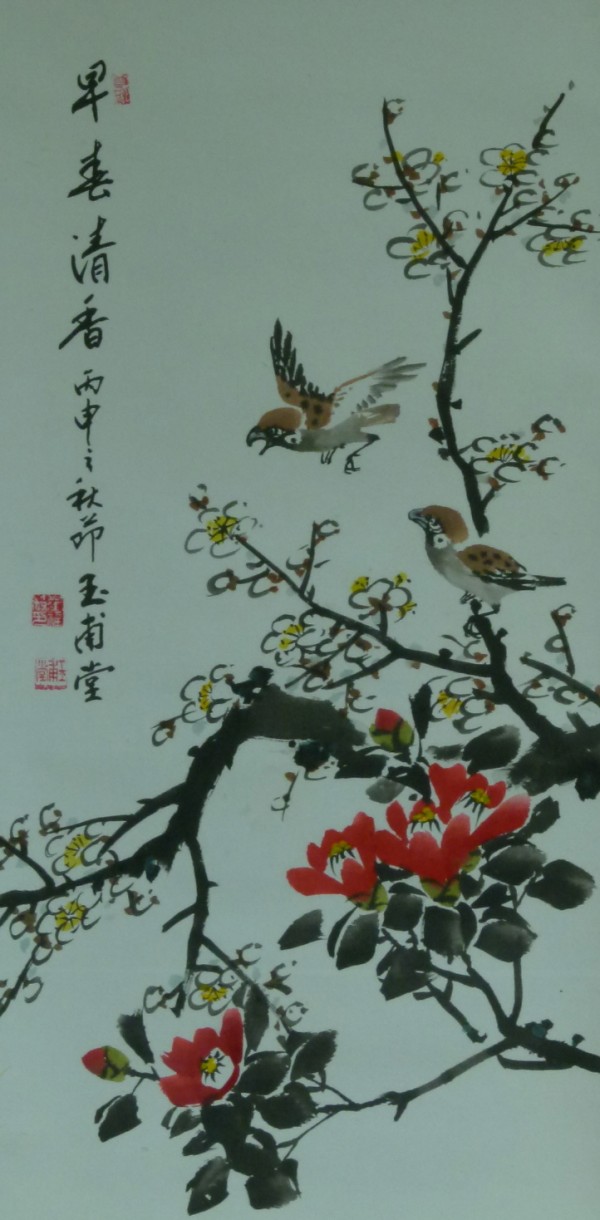 早春清香
丙申之秋节玉甫堂